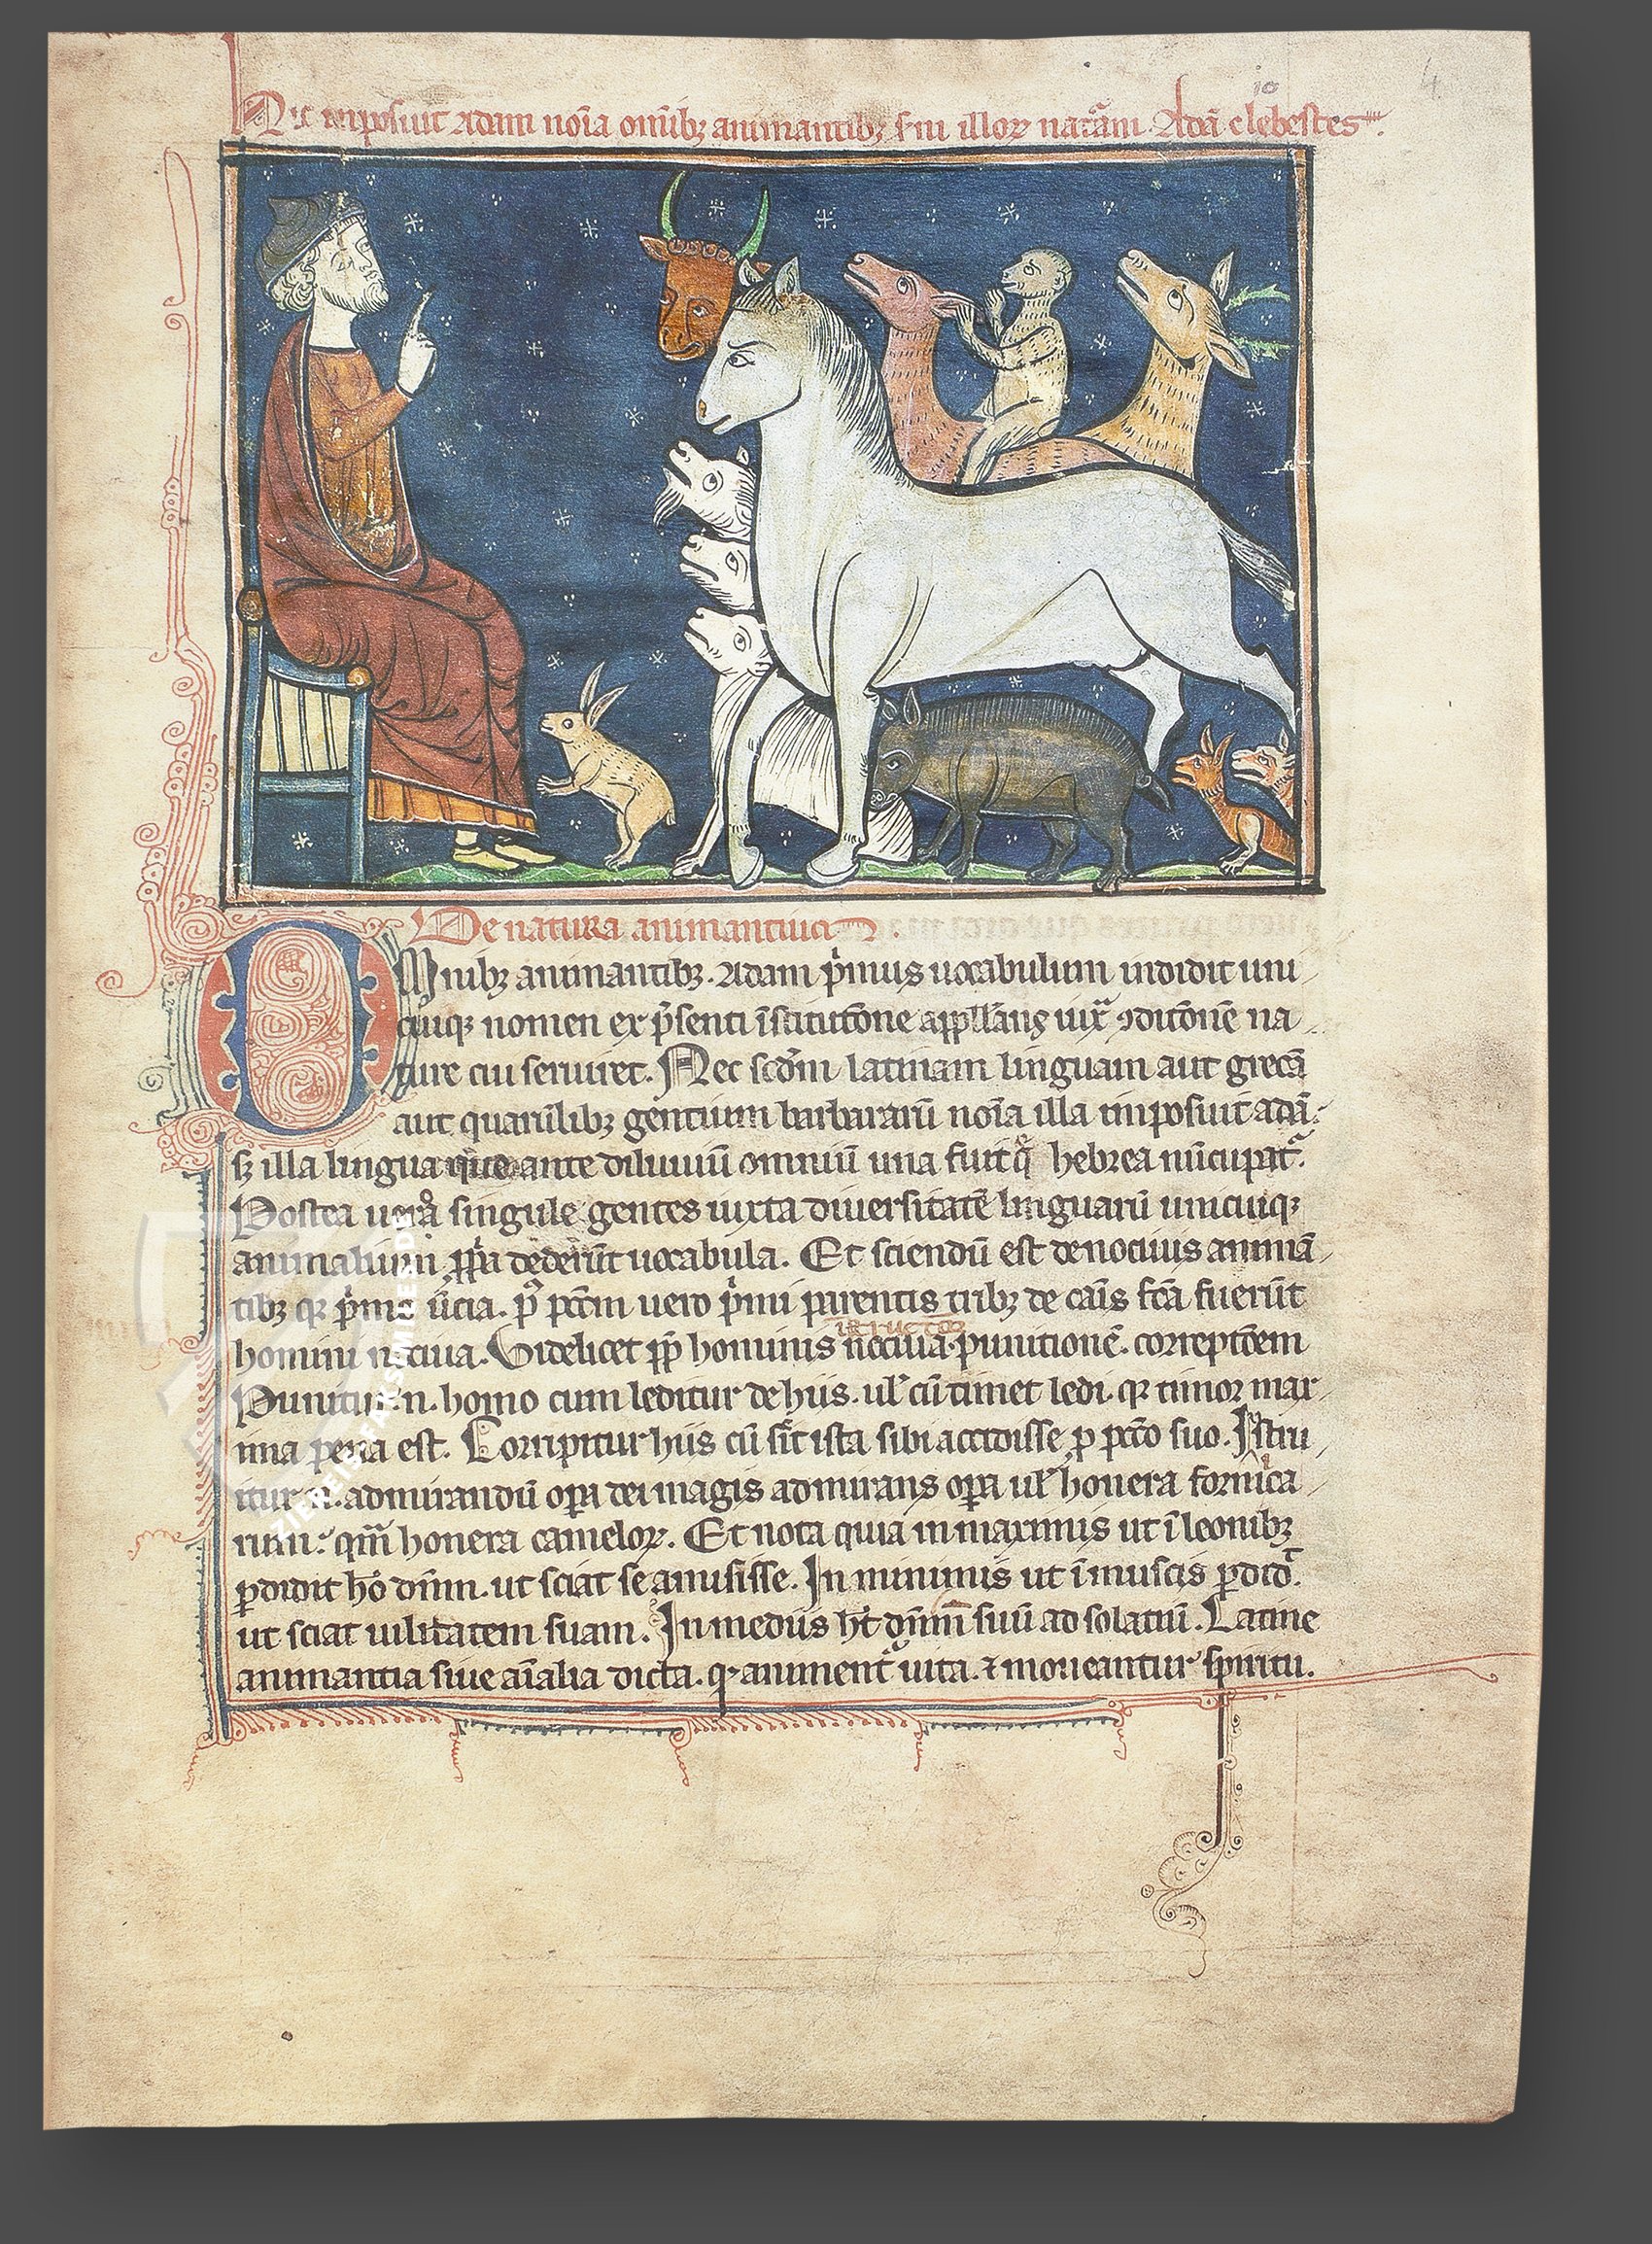 4
10
Hic imposuit adam noīa omībꝫ animantibꝫ sm̄ illoꝝ natām. Adā celestes
De natura animantium.
Omnibꝫ animantibꝫ. Adam p̄mus uocabulum indidit uni
cuiqꝫ nomen ex p̄senti īstitutōne appellans iuxᵃ ꝯditōnē na
ture cui seruiret. Nec scdm̄ latinam linguam aut grecā
aut quarūlibꝫ gentium barbararū noīa illa imposuit adā.
sꝫ illa lingua que ante diluuiū omniū una fuit q̄ hebrea nūcupat̄.
Postea uero singule gentes iuxta diuersitatē linguarū unicuiqꝫ
animalium ꝓpͥa dederūt uocabula. Et sciendū est de nociuis animā
tibꝫ qꝛ p̄mo īnoc̄ia. pꝰ pctm uero p̄mi parentis tribꝫ de cāis fcā fuerūt
instructōꝫ
homini nociua. Videlicet ꝓp̄ hominis nociua punitionē. correptōem
Punitur n. homo cum leditur de hiis. ul̄ cū timet ledi. qꝛ timor max
ima pena est. Corripitur hiis cū sc̄it ista sibi accidisse ꝓ pctō suo. Istru
itur n. admirandū oꝑa dei magis admirans oꝑa ul̄ honera formica
rum. qm̄ honera cameloꝝ. Et nota quia in maximis ut ī leonibꝫ
ꝑdidit hō dn̄m. ut sciat se amisisse. In minimis ut ī muscis ꝑdid̄.
ut sciat uilitatem suam. In mediis ht̄ dn̄m suū ad solatiū. Latine
animantia siue aīalia dicta. qꝛ animent̄ uita. ⁊ moueantur spiritu.
ZIEREIS FAKSIMILES.DE